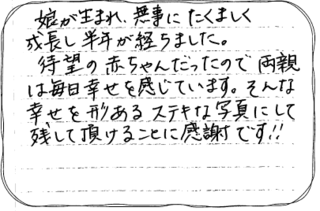 娘が生まれ、無事にたくましく
成長し半年が経ちました。
待望の赤ちゃんだったので両親
は毎日幸せを感じています。そんな
幸せを形あるステキな写真にして
残して頂けることに感謝です!!